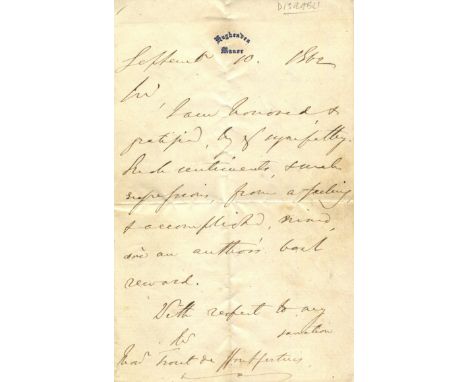 DISRAELI
Hughenden
Manor
September 10. 1862
Sir,
I am honored &
gratified, by yr sympathy.
Such sentiments, & such
expressions, from a feeling
& accomplished, mind,
are an author's best
reward.
With respect to any
sanction